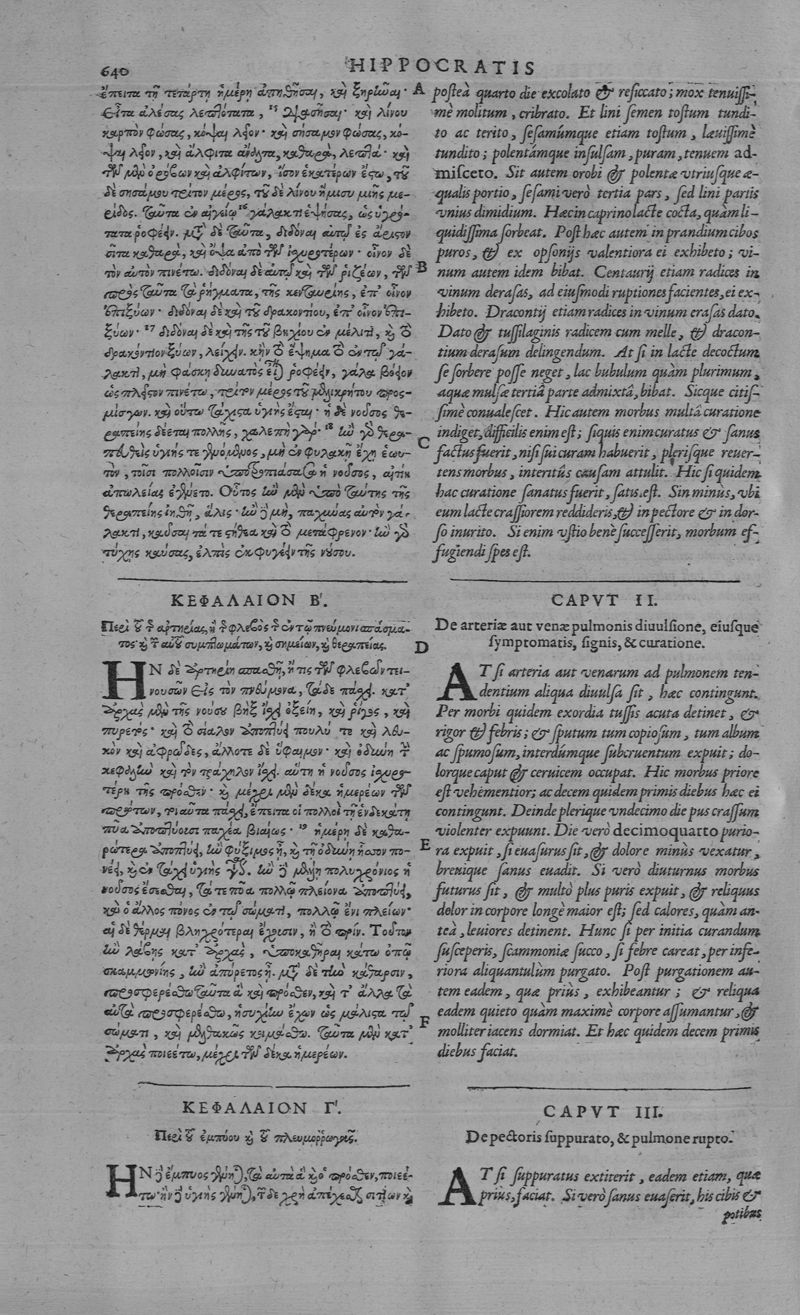 640
HIPPOCRATIS
ἔπειτα τῇ τετάρτῃ ἡμέρῃ ἀπηθῆσαι, καὶ ξηρῆναι·
εἶτα ἀλέσας λεπτότατα, 15 διασῆσαι· καὶ λίνου
καρπὸν φώσας, κόψαι λεῖον· καὶ σήσαμον φώσας, κό-
ψαι λεῖον, καὶ ἄλφιτα ἄναλτα, καθαρὰ, λεπτά· καὶ
τῶν μὲν ὀρόβων καὶ ἀλφίτων, ἴσον ἑκατέρων ἔστω, τοῦ
δὲ σησάμου τρίτον μέρος, τοῦ δὲ λίνου ἥμισυ μιῆς με-
ρίδος. ταῦτα ἐν αἰγείῳ 16 γάλακτι ἑψήσας, ὡς ὑγρό-
τατα ῥοφέειν. μετὰ δὲ ταῦτα, διδόναι αὐτῷ ἐς ἄριστον
σῖτα καθαρὰ, καὶ ὄψα ἀπὸ τῶν ἰσχυροτέρων· οἶνον δὲ
τὸν αὐτὸν πινέτω. διδόναι δὲ αὐτῷ καὶ τῶν ῥιζέων, τῶν
πρὸς ταῦτα τὰ ῥήγματα, τῆς κενταυρίης, ἐπ' οἶνον
ἐπιξύων· διδόναι δὲ καὶ τοῦ δρακοντίου, ἐπ' οἶνον ἐπι-
ξύων· 17 διδόναι δὲ καὶ τῆς τοῦ βηχίου ἐν μέλιτι, καὶ τὸ
δρακόντιον ξύων, λείχειν. κἢν τὸ ἕψημα τὸ ἐν τῷ γά-
λακτι, μὴ φάσκῃ δυνατὸς εἶναι ῥοφέειν, γάλα βόειον
ὡς πλεῖστον πινέτω, τρίτον μέρος τοῦ μελικρήτου προσ-
μίσγων. καὶ οὕτω τάχιστα ὑγιὴς ἔσται· ἡ δὲ νοῦσος θε-
ραπείης δέεται πολλῆς, χαλεπὴ γάρ· 18 ἢν γὰρ θερα-
πευθεὶς ὑγιής τε γενόμενος, μὴ ἐν φυλακῇ ἔχῃ ἑωυ-
τὸν, τοῖσι πολλοῖσιν ὑποστροπιάσασα ἡ νοῦσος, αἰτίη
ἀπωλείας ἐγένετο. Οὗτος ἢν μὲν ὑπὸ ταύτης τῆς
θεραπείης ἰηθῇ, ἅλις· ἢν δὲ μὴ, παχύνας αὐτὸν γά-
λακτι, καῦσαι τά τε στήθεα καὶ τὸ μετάφρενον· ἢν γὰρ
τύχῃς καύσας, ἐλπὶς ἐκφυγέειν τὴν νοῦσον.
ΚΕΦΑΛΑΙΟΝ Β΄.
Περὶ τοῦ τῆς ἀρτηρίας, ἢ τῆς φλεβὸς τῆς ἐν τῷ πνεύμονι σπάσμα-
τος καὶ τῶν αὐτοῦ συμπτωμάτων, καὶ σημείων, καὶ θεραπείας.
ΗΝ δὲ ἀρτηρίη σπασθῇ, ἤ τις τῶν φλεβῶν τει-
νουσῶν εἰς τὸν πνεύμονα, τάδε πάσχει. κατ'
ἀρχὰς μὲν τῆς νούσου βὴξ ἴσχει ὀξείη, καὶ ῥῖγος, καὶ
πυρετός· καὶ τὸ σίαλον ἀποπτύει πουλύ τε καὶ λευ-
κὸν καὶ ἀφρῶδες, ἄλλοτε δὲ ὕφαιμον· καὶ ὀδύνη τὴν
κεφαλὴν καὶ τὸν τράχηλον ἴσχει. αὕτη ἡ νοῦσος ἰσχυρο-
τέρη τῆς πρόσθεν· καὶ μέχρι μὲν δέκα ἡμερέων τῶν
πρώτων, τοιαῦτα πάσχει, ἔπειτα οἱ πολλοὶ τῇ ἑνδεκάτῃ
πῦα ἀποπτύουσι παχέα βιαίως· 19 ἡμέρῃ δὲ καθα-
ρώτερα ἀποπτύει, ἢν φύξιμος ᾖ, καὶ τῇ ὀδύνῃ ἧσσον πο-
νέει, καὶ ἐν τάχει ὑγιὴς γίνεται. ἢν δὲ μέλλῃ πολυχρόνιος ἡ
νοῦσος ἔσεσθαι, τά τε πῦα πολλῷ πλείονα ἀποπτύει,
καὶ ὁ ἄλλος πόνος ἐν τῷ σώματι, πολλῷ ἔνι πλείων·
αἱ δὲ θέρμαι βληχρότεραι ἔχουσιν, ἢ τὸ πρίν. Τοῦτον
ἢν λάβῃς κατ' ἀρχὰς, ὑποκαθῆραι κάτω ὀπῷ
σκαμμωνίης, ἢν ἀπύρετος ᾖ. μετὰ δὲ τὴν κάθαρσιν,
προσφερέσθω ταῦτα ἃ καὶ πρόσθεν, καὶ τ' ἄλλα τὰ
αὐτὰ προσφερέσθω, ἡσυχίην ἔχων ὡς μάλιστα τῷ
σώματι, καὶ μαλθακῶς κοιμάσθω. ταῦτα μὲν κατ'
ἀρχὰς ποιεέτω, μέχρι τῶν δέκα ἡμερέων.
ΚΕΦΑΛΑΙΟΝ Γ΄.
Περὶ τοῦ ἐμπύου καὶ τοῦ
ΗΝ δὲ ἔμπυος γένηται, τὰ αὐτὰ ἃ καὶ ὁ πρόσθεν, ποιεέ-
τω· ἢν δὲ ὑγιὴς γένηται, τόνδε χρὴ ἀπέχεσθαι σιτίων καὶ
A
B
C
D
E
F
poſteà quarto die excolato & reſiccato; mox tenuiſſi-
mè molitum, cribrato. Et lini ſemen toſtum tundi-
to ac terito, ſeſamúmque etiam toſtum, læuiſſimè
tundito; polentámque inſulſam, puram, tenuem ad-
miſceto. Sit autem orobi & polentæ vtriuſque æ-
qualis portio, ſeſami verò tertia pars, ſed lini partis
vnius dimidium. Hæc in caprino lacte cocta, quàm li-
quidiſſima ſorbeat. Poſt hæc autem in prandium cibos
puros, & ex opſonijs valentiora ei exhibeto; vi-
num autem idem bibat. Centaurij etiam radices in
vinum deraſas, ad eiuſmodi ruptiones facientes, ei ex-
hibeto. Dracontij etiam radices in vinum eraſas dato.
Dato & tuſſilaginis radicem cum melle, & dracon-
tium deraſum delingendum. At ſi in lacte decoctum
ſe ſorbere poſſe neget, lac bubulum quàm plurimum,
aquæ mulſæ tertiâ parte admixtâ, bibat. Sicque citiſ-
ſimè conualeſcet. Hic autem morbus multâ curatione
indiget, difficilis enim eſt; ſiquis enim curatus & ſanus
factus fuerit, niſi ſui curam habuerit, pleriſque reuer-
tens morbus, interitûs cauſam attulit. Hic ſi quidem
hac curatione ſanatus fuerit, ſatis eſt. Sin minùs, vbi
eum lacte craſſiorem reddideris, & in pectore & in dor-
ſo inurito. Si enim vſtio benè ſucceſſerit, morbum ef-
fugiendi ſpes eſt.
CAPVT II.
De arteriæ aut venæ pulmonis diuulſione, eiuſque
ſymptomatis, ſignis, & curatione.
AT ſi arteria aut venarum ad pulmonem ten-
dentium aliqua diuulſa ſit, hæc contingunt.
Per morbi quidem exordia tuſſis acuta detinet, &
rigor & febris; & ſputum tum copioſum, tum album
ac ſpumoſum, interdúmque ſubcruentum expuit; do-
lorque caput & ceruicem occupat. Hic morbus priore
eſt vehementior; ac decem quidem primis diebus hæc ei
contingunt. Deinde plerique vndecimo die pus craſſum
violenter expuunt. Die verò decimoquarto purio-
ra expuit, ſi euaſurus ſit, & dolore minùs vexatur,
breuique ſanus euadit. Si verò diuturnus morbus
futurus ſit, & multò plus puris expuit, & reliquus
dolor in corpore longè maior eſt; ſed calores, quàm an-
teà, leuiores detinent. Hunc ſi per initia curandum
ſuſceperis, ſcammoniæ ſucco, ſi febre careat, per infe-
riora aliquantulùm purgato. Poſt purgationem au-
tem eadem, quæ priùs, exhibeantur; & reliqua
eadem quieto quàm maximè corpore aſſumantur, &
molliter iacens dormiat. Et hæc quidem decem primis
diebus faciat.
CAPVT III.
De pectoris ſuppurato, & pulmone rupto.
AT ſi ſuppuratus extiterit, eadem etiam, quæ
priùs, faciat. Si verò ſanus euaſerit, his cibis &
potibus